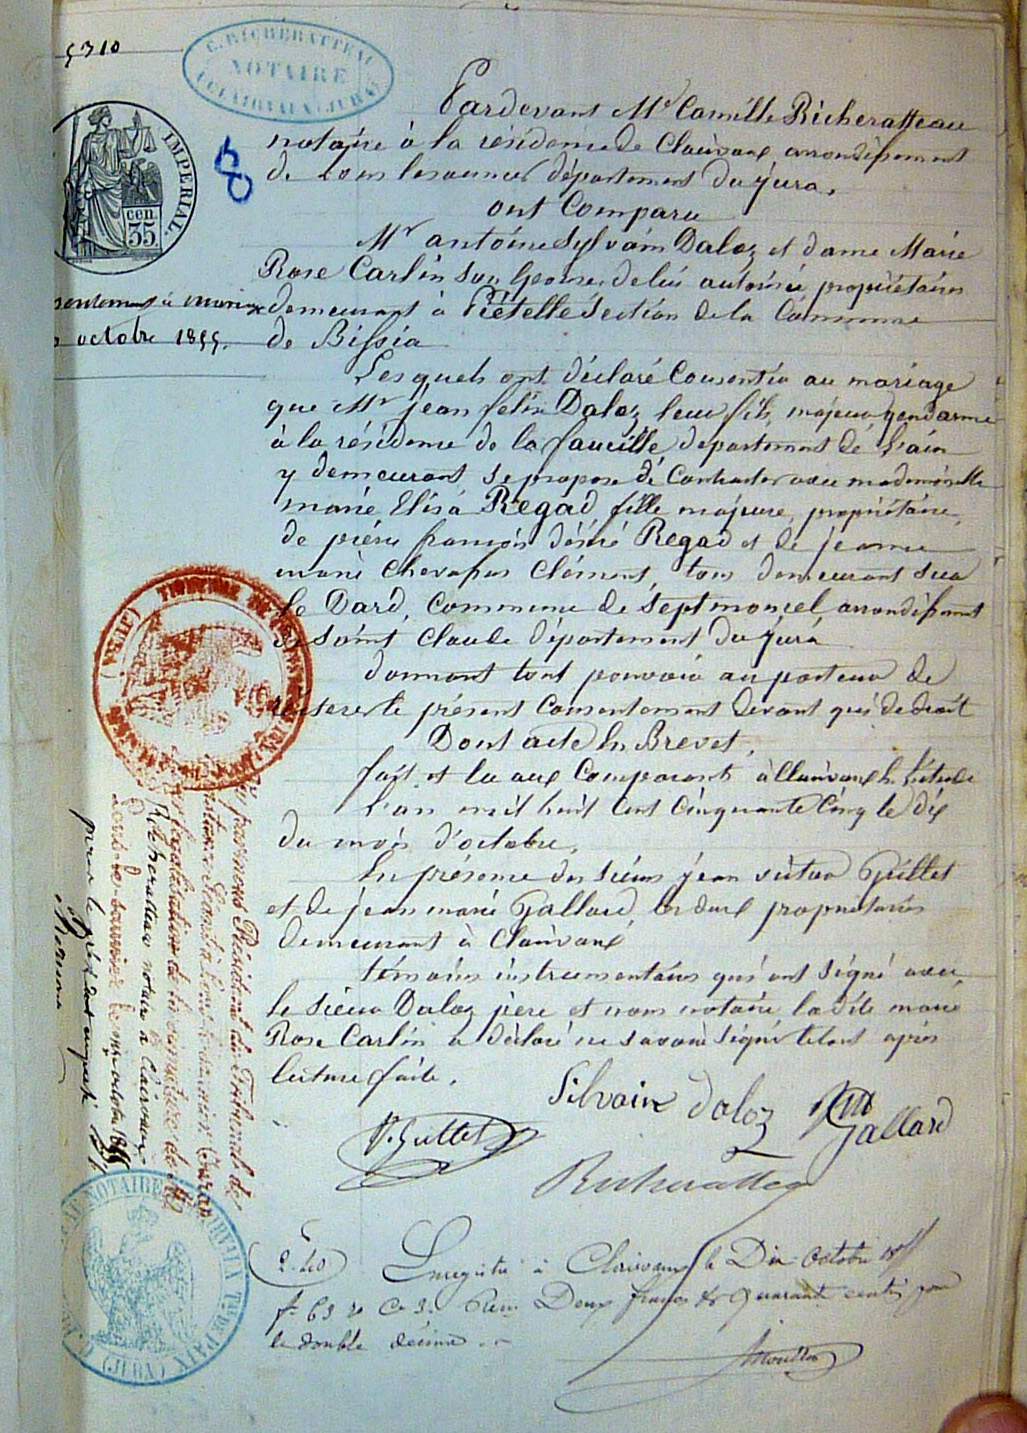 5310
C. RICHERATTEAU
NOTAIRE
CLAIRVAUX (JURA)
IMPERIAL.
cen.
35
58
consentement à mariage
octobre 1855.
Pardevant Me Camille Richeratteau
notaire à la résidence de Clairvaux arrondissement
de Lons lesaunier département du jura.
ont Comparu
Mr antoine Sylvain Daloz et dame Marie
Rose Carlin son épouse de lui autorisée propriétaires
demeurant à Piételle Section de la Commune
de Bissia
Lesquels ont déclaré Consentir au mariage
que Mr jean felix Daloz leur fils, majeur gendarme
à la résidence de la faucille département de l'ain
y demeurant se propose de Contracter avec mademoiselle
marie Elisa Regad fille majeure, propriétaire,
de pierre françois désiré Regad et de jeanne
marie Chevassus Clément, tous demeurant sur
le Dard, Commune de septmoncel arrondissement
de saint Claude département du jura
donnant tout pouvoir au porteur de
réiterer le présent Consentement devant qui de droit
Dont acte En Brevet.
fait et lu aux Comparants à Clairvaux En l'étude
L'an mil huit cent Cinquante Cinq le dix
du mois d'octobre.
En présence des sieurs jean victor Guillet
et de jean marie Gallard, les deux propriétaires
demeurant à Clairvaux
témoins instrumentaires qui ont signé avec
le sieur Daloz père et nous notaire la dite marie
Rose Carlin a déclaré ne savoir signer le tout après
lecture faite.
Silvain daloz
Gallard
Richeratteau
2.40
Enregistré à Clairvaux le Dix octobre 1855
fo 69 Ro Ce 3. Reçu Deux francs & quarante centes pour
le double décime.
Vu par nous Président du Tribunal de
Lons-le-saunier (Jura)
légalisation de la signature de Me
Richeratteau notaire à Clairvaux
Lons-le-saunier le onze octobre 1855
pour le président empêché
NOTAIRE CLAIRVAUX
(JURA)